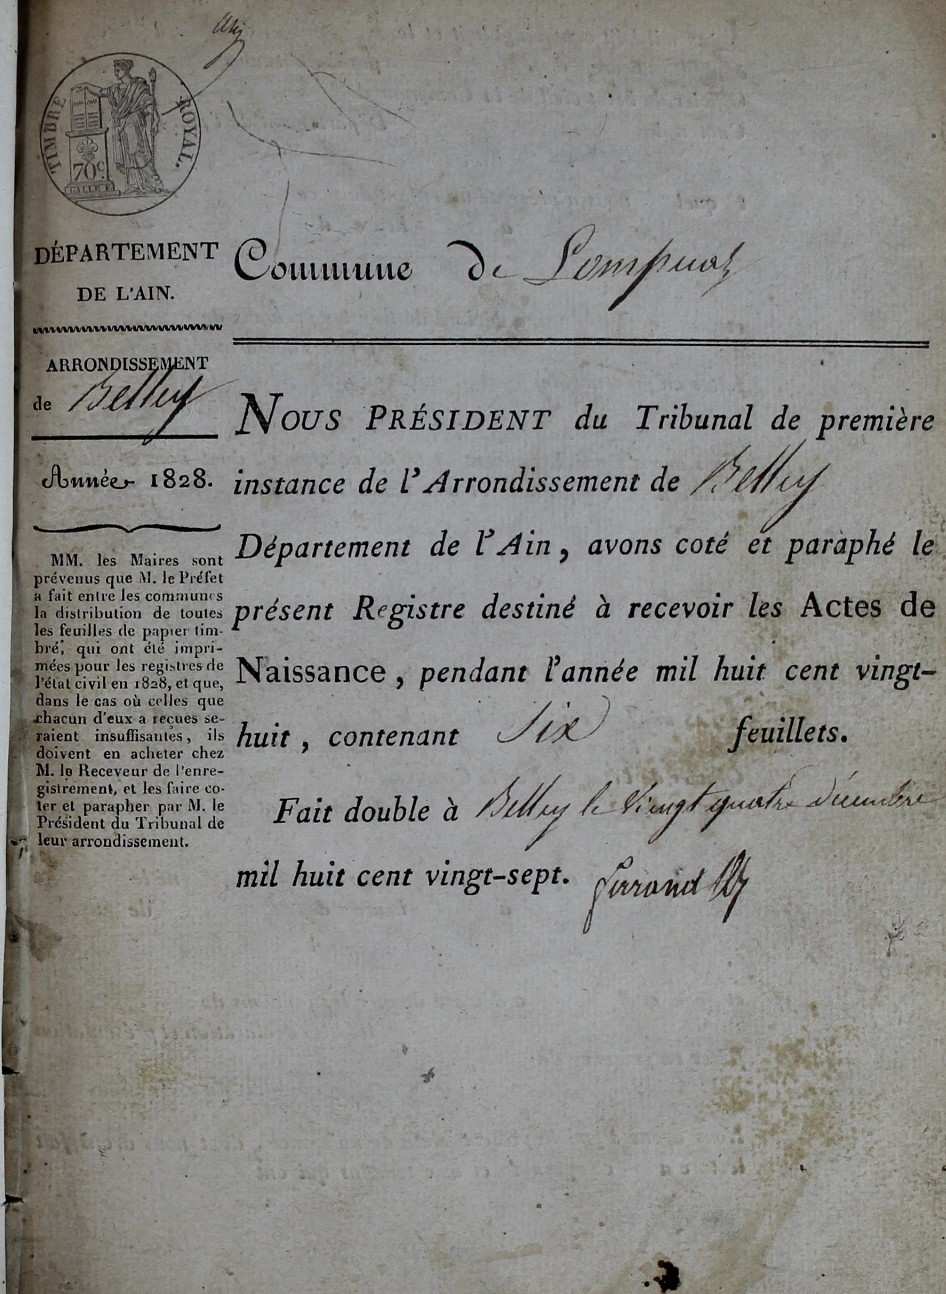 TIMBRE ROYAL.
70 c.
DÉPARTEMENT
DE L'AIN.
ARRONDISSEMENT
de Belley
Année 1828.
MM. les Maires sont
prévenus que M. le Préfet
a fait entre les communes
la distribution de toutes
les feuilles de papier tim-
bré, qui ont été impri-
mées pour les registres de
l'état civil en 1828, et que,
dans le cas où celles que
chacun d'eux a reçues se-
raient insuffisantes, ils
doivent en acheter chez
M. le Receveur de l'enre-
gistrement, et les faire co-
ter et parapher par M. le
Président du Tribunal de
leur arrondissement.
Commune de Lompnas
NOUS PRÉSIDENT du Tribunal de première
instance de l'Arrondissement de Belley
Département de l'Ain, avons coté et paraphé le
présent Registre destiné à recevoir les Actes de
Naissance, pendant l'année mil huit cent vingt-
huit, contenant Six feuillets.
Fait double à Belley le vingt quatre décembre
mil huit cent vingt-sept.